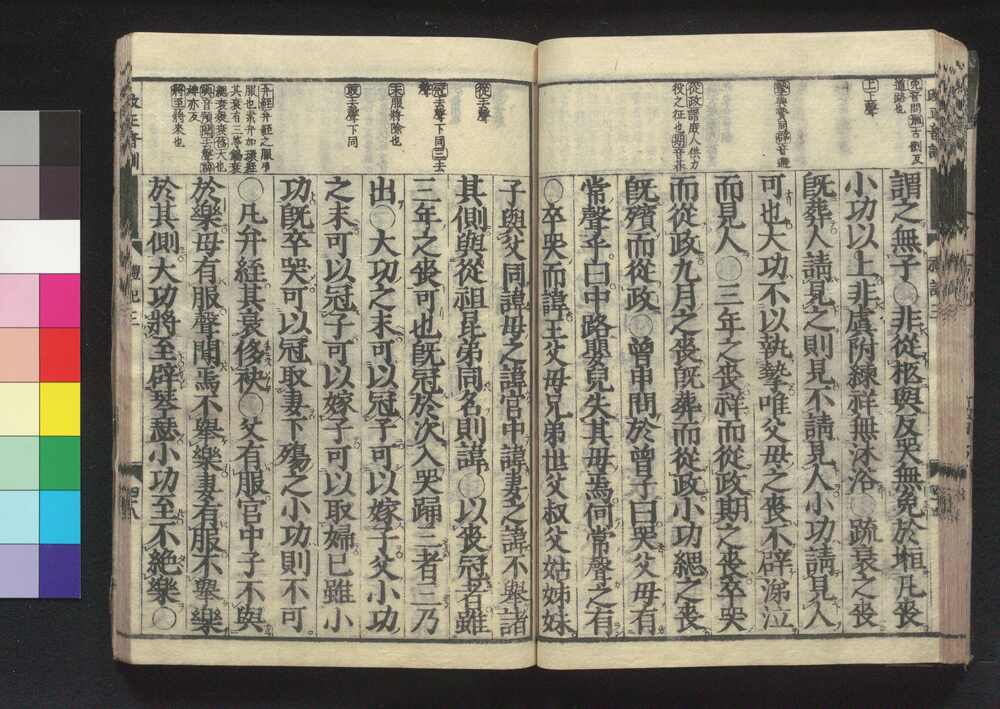 謂之無子○非從柩與反哭無免於堩凡喪
小功以上非虞附練祥無沐浴○疏衰之喪
既葬人請見之則見不請見人小功請見人
可也大功不以執摯唯父母之喪不辟涕泣
而見人○三年之喪祥而從政期之喪卒哭
而從政九月之喪既葬而從政小功緦之喪
既殯而從政○曾申問於曾子曰哭父母有
常聲乎曰中路嬰兒失其母焉何常聲之有
○卒哭而諱王父母兄弟世父叔父姑姊妹
子與父同諱母之諱宮中諱妻之諱不舉諸
其側與從祖昆弟同名則諱○以喪冠者雖
三年之喪可也既冠於次入哭踊三者三乃
出○大功之末可以冠子可以嫁子父小功
之末可以冠子可以嫁子可以取婦己雖小
功既卒哭可以冠取妻下殤之小功則不可
○凡弁絰其衰侈袂○父有服宮中子不與
於樂母有服聲聞焉不舉樂妻有服不舉樂
於其側大功將至辟琴瑟小功至不絕樂○
免音問堩古鄧反
道路也
上上聲
從政謂庶人供力
役之征也期音朞
從去聲
冠去聲下同三去
聲
末服將除也
取去聲下同
弁絰弁絰之服弔
服也素弁加環絰
其衰有三等錫衰
緦衰疑衰侈大也
神亦反
將至將來也
改正音訓
禮記三
四十八